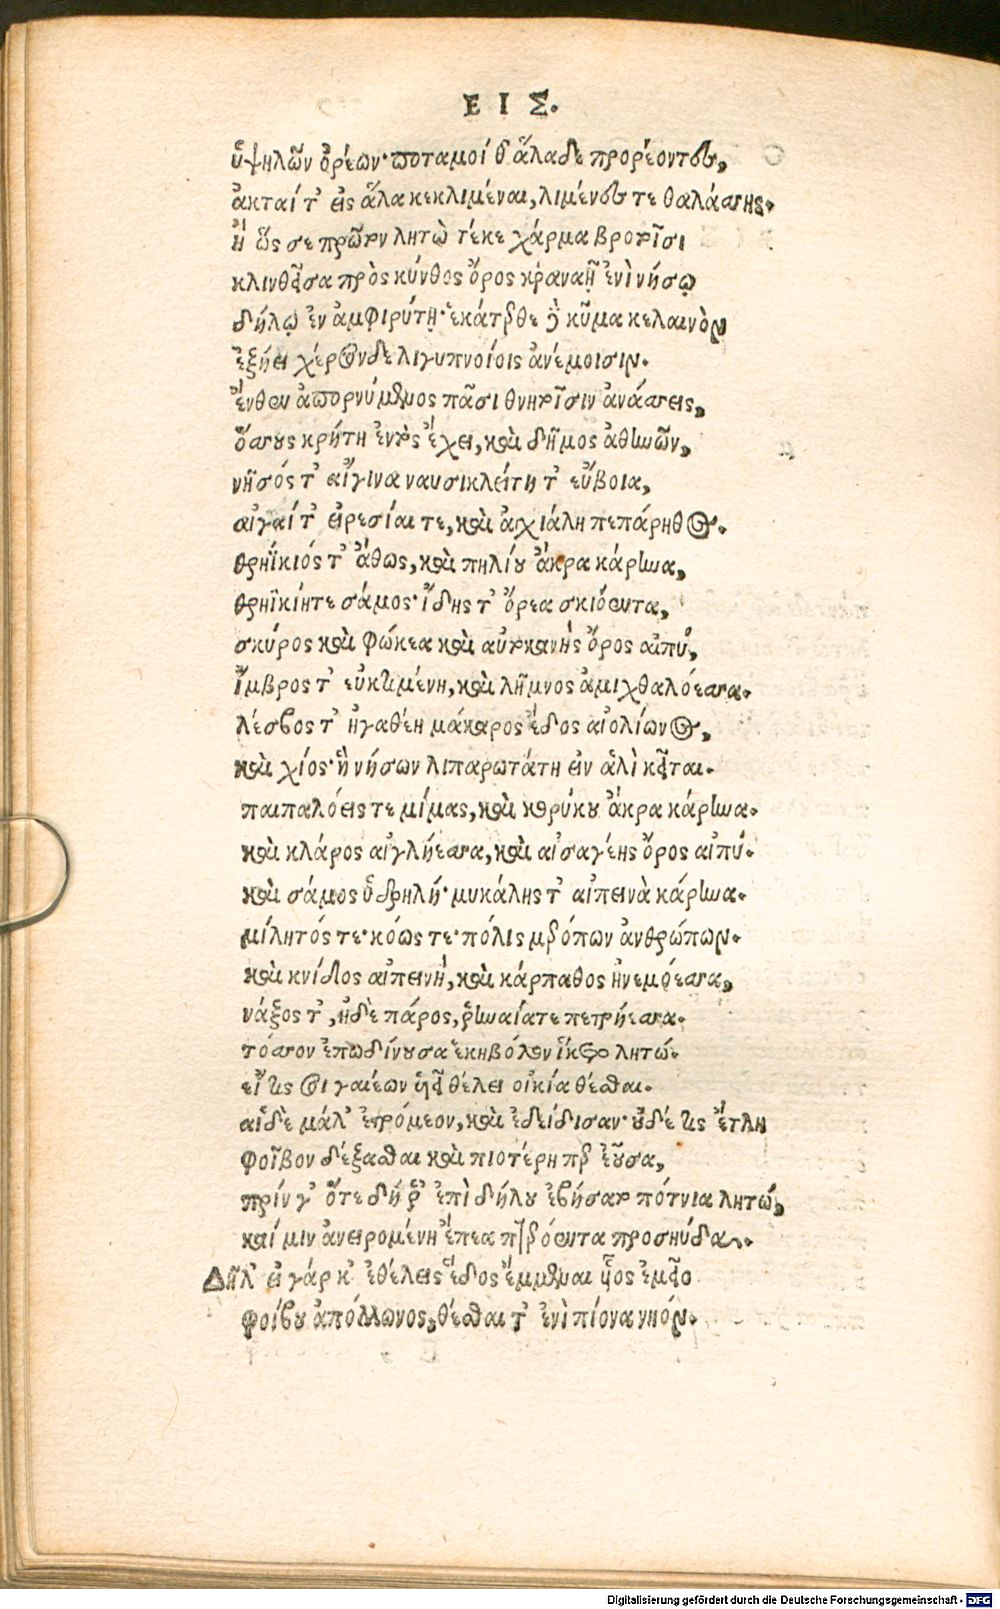 ΕΙΣ.
ὑψηλῶν ὀρέων· ποταμοί θ' ἅλαδε προρέοντες,
ἀκταί τ' εἰς ἅλα κεκλιμέναι, λιμένες τε θαλάσσης.
ἢ ὥς σε πρῶτον λητὼ τέκε χάρμα βροτοῖσι
κλινθεῖσα πρὸς κύνθος ὄρος κραναῇ ἐνὶ νήσῳ
δήλῳ ἐν ἀμφιρύτῃ· ἑκάτερθε δὲ κῦμα κελαινὸν
ἐξῄει χέρσονδε λιγυπνοίοις ἀνέμοισιν.
ἔνθεν ἀπορνύμενος πᾶσι θνητοῖσιν ἀνάσσεις,
ὅσσους κρήτη ἐντὸς ἔχει, καὶ δῆμος ἀθηνῶν,
νῆσός τ' αἴγινα ναυσικλείτη τ' εὔβοια,
αἰγαί τ' εἰρεσίαι τε, καὶ ἀγχιάλη πεπάρηθος.
θρηΐκιός τ' ἄθως, καὶ πηλίου ἄκρα κάρηνα,
θρηϊκίη τε σάμος· ἴδης τ' ὄρεα σκιόεντα,
σκύρος καὶ φώκεα καὶ αὐτοκανῆς ὄρος αἰπύ,
ἴμβρος τ' εὐκτιμένη, καὶ λῆμνος ἀμιχθαλόεσσα.
λέσβος τ' ἠγαθέη μάκαρος ἕδος αἰολίωνος,
καὶ χίος· ἣ νήσων λιπαρωτάτη εἰν ἁλὶ κεῖται.
παιπαλόεις τε μίμας, καὶ κωρύκου ἄκρα κάρηνα.
καὶ κλάρος αἰγλήεσσα, καὶ αἰσαγέης ὄρος αἰπύ.
καὶ σάμος ὑδρηλή· μυκάλης τ' αἰπεινὰ κάρηνα.
μίλητός τε· κόως τε· πόλις μερόπων ἀνθρώπων.
καὶ κνίδος αἰπεινὴ, καὶ κάρπαθος ἠνεμόεσσα,
νάξος τ', ἠδὲ πάρος, ῥηναίατε πετρήεσσα.
τόσσον ἐπωδίνουσα ἑκηβόλον ἵκετο λητώ.
εἴ τίς οἱ γαιέων υἱεῖ θέλει οἰκία θέσθαι.
αἱ δὲ μάλ' ἐτρόμεον, καὶ ἐδείδισαν· οὐδέ τις ἔτλη
φοῖβον δέξασθαι καὶ πιοτέρη περ ἐοῦσα,
πρίν γ' ὅτε δή ῥ' ἐπὶ δήλου ἐβήσατο πότνια λητώ,
καί μιν ἀνειρομένη ἔπεα πτερόεντα προσηύδα.
Δῆλ' εἰ γάρ κ' ἐθέλεις ἕδος ἔμμεναι υἷος ἐμεῖο
φοίβου ἀπόλλωνος, θέσθαι τ' ἐνὶ πίονα νηόν.
Digitalisierung gefördert durch die Deutsche Forschungsgemeinschaft - DFG